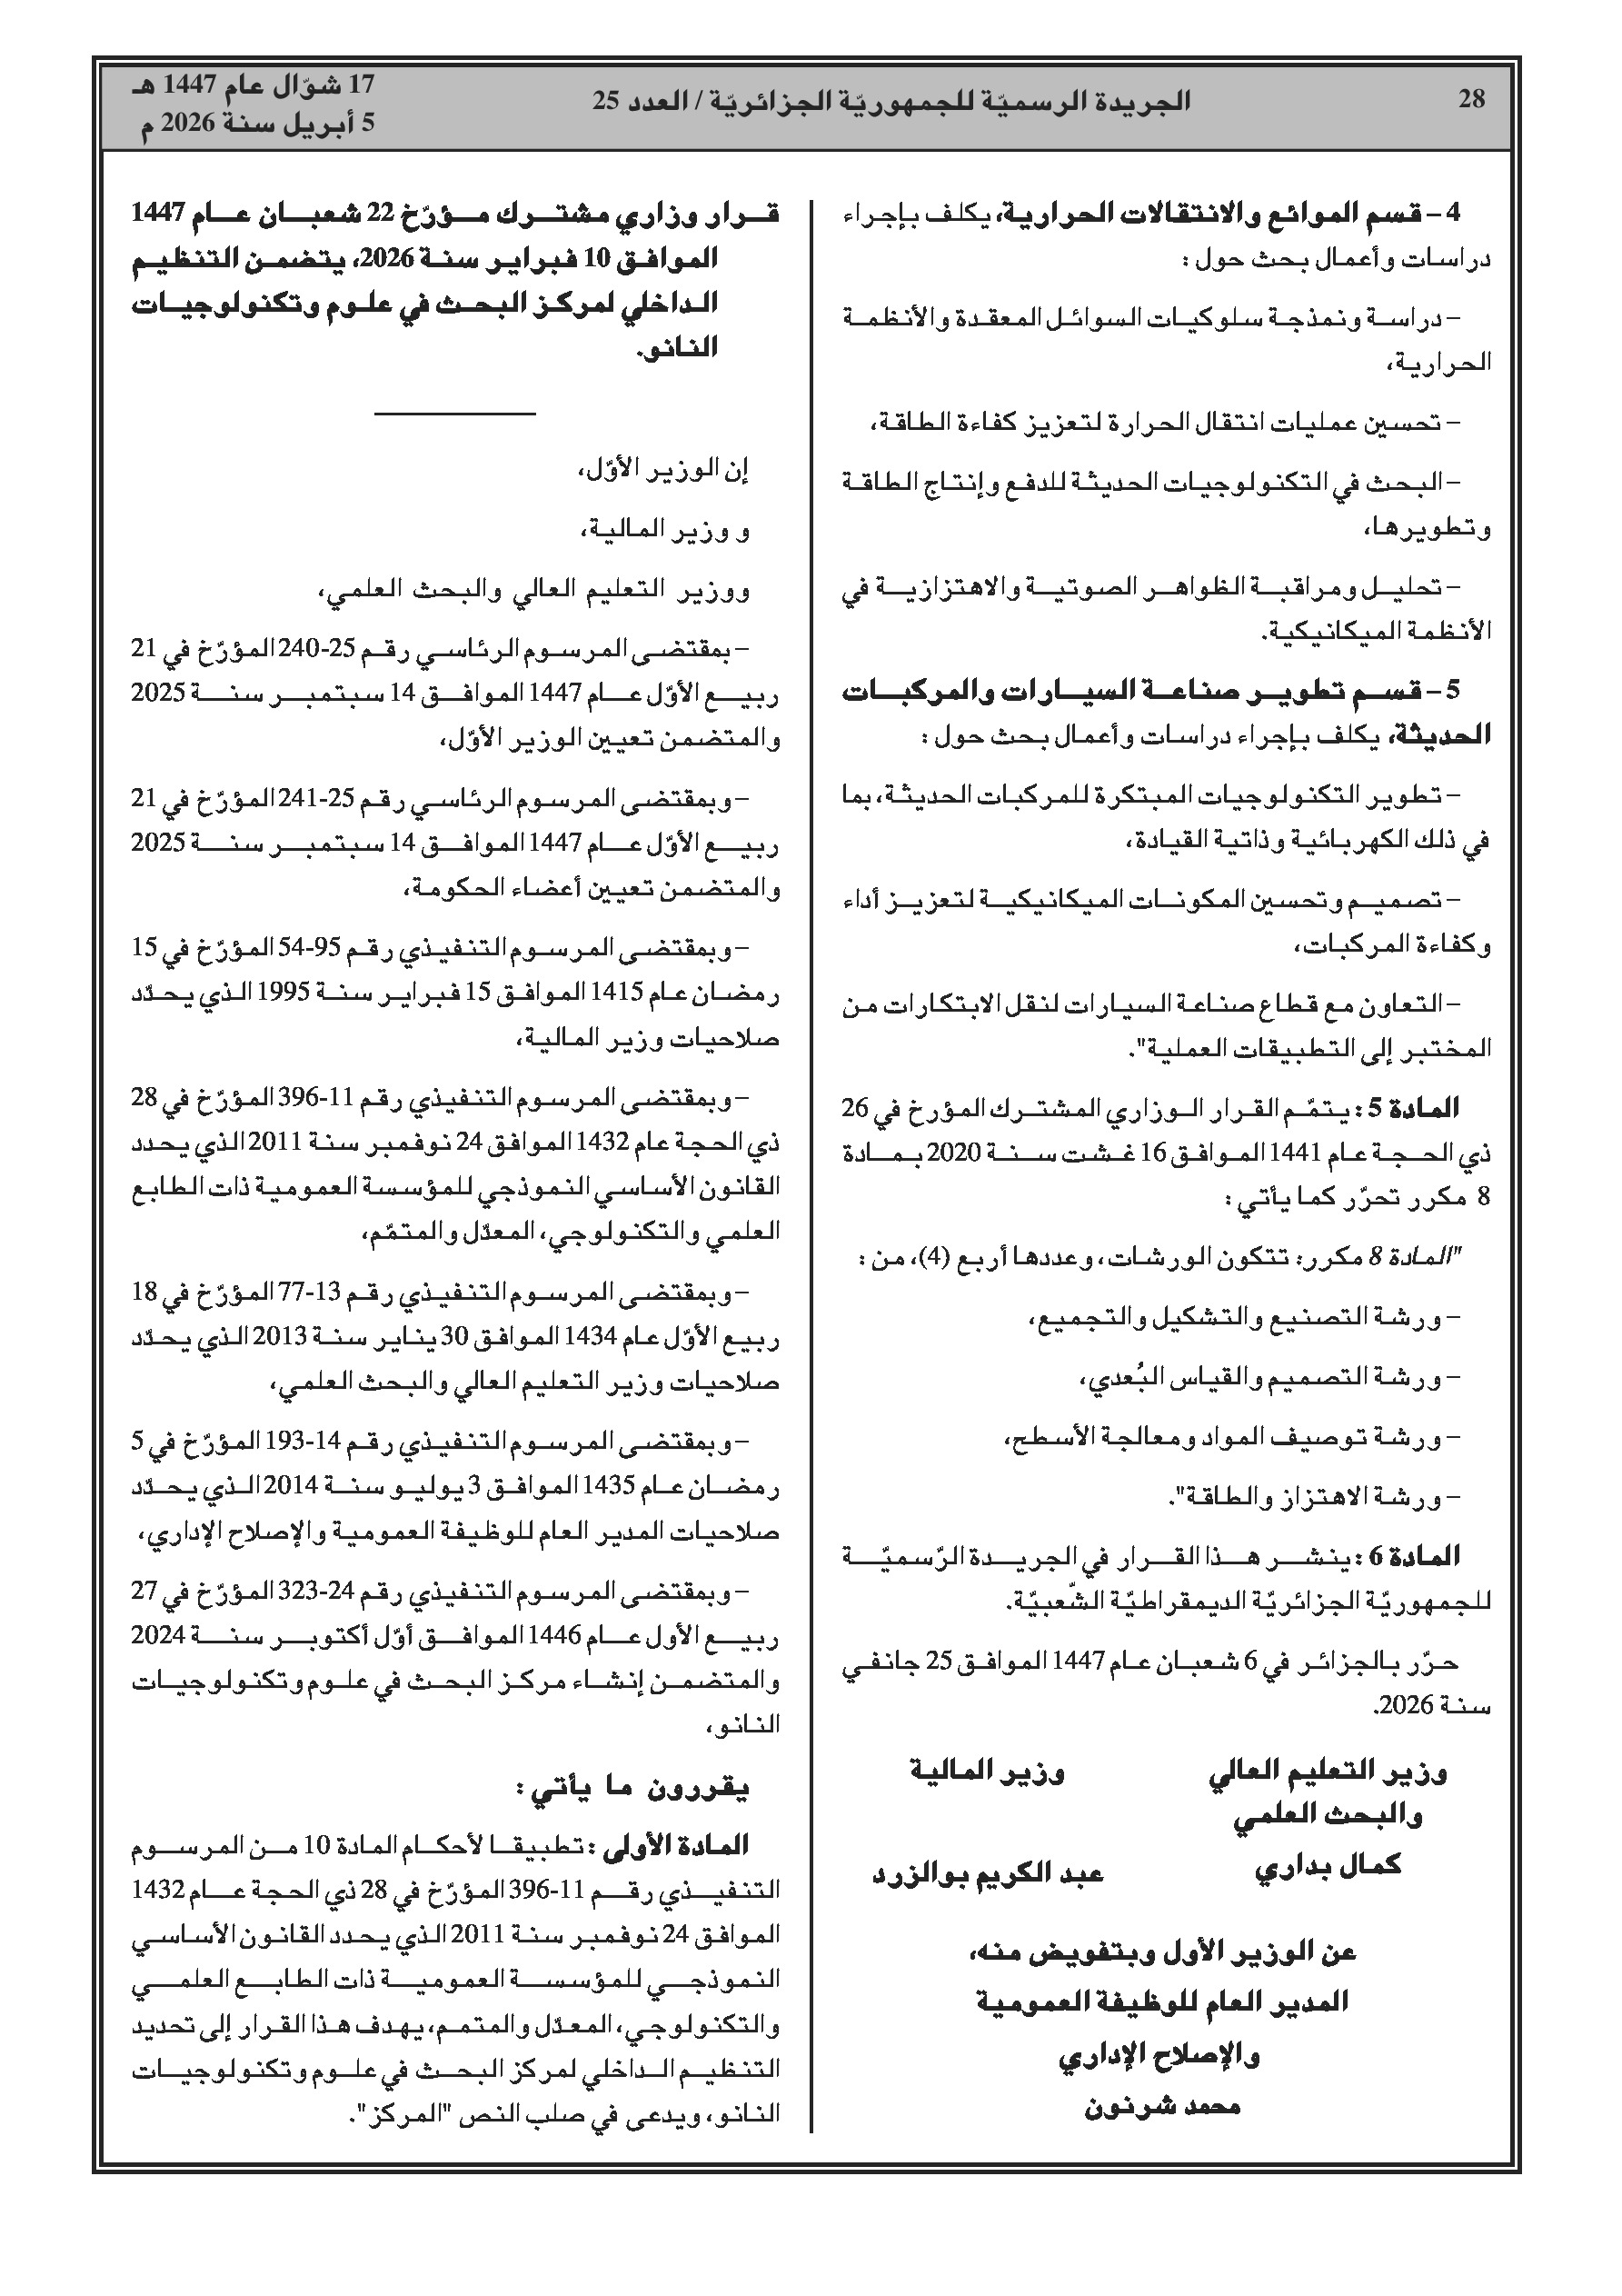 28
الجريدة الرسميّة للجمهوريّة الجزائريّة / العدد 25
17 شوّال عام 1447 هـ
5 أبريل سنة 2026 م
4 – قسم الموائع والانتقالات الحرارية، يكلف بإجراء
دراسات وأعمال بحث حول :
– دراسة ونمذجة سلوكيات السوائل المعقدة والأنظمة
الحرارية،
– تحسين عمليات انتقال الحرارة لتعزيز كفاءة الطاقة،
– البحث في التكنولوجيات الحديثة للدفع وإنتاج الطاقة
وتطويرها،
– تحليل ومراقبة الظواهر الصوتية والاهتزازية في
الأنظمة الميكانيكية.
5 – قسم تطوير صناعة السيارات والمركبات
الحديثة، يكلف بإجراء دراسات وأعمال بحث حول :
– تطوير التكنولوجيات المبتكرة للمركبات الحديثة، بما
في ذلك الكهربائية وذاتية القيادة،
– تصميم وتحسين المكونات الميكانيكية لتعزيز أداء
وكفاءة المركبات،
– التعاون مع قطاع صناعة السيارات لنقل الابتكارات من
المختبر إلى التطبيقات العملية".
المادة 5 : يتمّم القرار الوزاري المشترك المؤرخ في 26
ذي الحجة عام 1441 الموافق 16 غشت سنة 2020 بمادة
8 مكرر تحرّر كما يأتي :
"المادة 8 مكرر: تتكون الورشات، وعددها أربع (4)، من :
– ورشة التصنيع والتشكيل والتجميع،
– ورشة التصميم والقياس البُعدي،
– ورشة توصيف المواد ومعالجة الأسطح،
– ورشة الاهتزاز والطاقة".
المادة 6 : ينشر هذا القرار في الجريدة الرّسميّة
للجمهوريّة الجزائريّة الديمقراطيّة الشّعبيّة.
حرّر بالجزائر في 6 شعبان عام 1447 الموافق 25 جانفي
سنة 2026.
وزير التعليم العالي
والبحث العلمي
كمال بداري
وزير المالية
عبد الكريم بوالزرد
عن الوزير الأول وبتفويض منه،
المدير العام للوظيفة العمومية
والإصلاح الإداري
محمد شرنون
قرار وزاري مشترك مؤرّخ 22 شعبان عام 1447
الموافق 10 فبراير سنة 2026، يتضمن التنظيم
الداخلي لمركز البحث في علوم وتكنولوجيات
النانو.
إن الوزير الأوّل،
و وزير المالية،
ووزير التعليم العالي والبحث العلمي،
– بمقتضى المرسوم الرئاسي رقم 25-240 المؤرّخ في 21
ربيع الأوّل عام 1447 الموافق 14 سبتمبر سنة 2025
والمتضمن تعيين الوزير الأوّل،
– وبمقتضى المرسوم الرئاسي رقم 25-241 المؤرّخ في 21
ربيع الأوّل عام 1447 الموافق 14 سبتمبر سنة 2025
والمتضمن تعيين أعضاء الحكومة،
– وبمقتضى المرسوم التنفيذي رقم 95-54 المؤرّخ في 15
رمضان عام 1415 الموافق 15 فبراير سنة 1995 الذي يحدّد
صلاحيات وزير المالية،
– وبمقتضى المرسوم التنفيذي رقم 11-396 المؤرّخ في 28
ذي الحجة عام 1432 الموافق 24 نوفمبر سنة 2011 الذي يحدد
القانون الأساسي النموذجي للمؤسسة العمومية ذات الطابع
العلمي والتكنولوجي، المعدّل والمتمّم،
– وبمقتضى المرسوم التنفيذي رقم 13-77 المؤرّخ في 18
ربيع الأوّل عام 1434 الموافق 30 يناير سنة 2013 الذي يحدّد
صلاحيات وزير التعليم العالي والبحث العلمي،
– وبمقتضى المرسوم التنفيذي رقم 14-193 المؤرّخ في 5
رمضان عام 1435 الموافق 3 يوليو سنة 2014 الذي يحدّد
صلاحيات المدير العام للوظيفة العمومية والإصلاح الإداري،
– وبمقتضى المرسوم التنفيذي رقم 24-323 المؤرّخ في 27
ربيع الأول عام 1446 الموافق أوّل أكتوبر سنة 2024
والمتضمن إنشاء مركز البحث في علوم وتكنولوجيات
النانو،
يقررون ما يأتي :
المادة الأولى : تطبيقا لأحكام المادة 10 من المرسوم
التنفيذي رقم 11-396 المؤرّخ في 28 ذي الحجة عام 1432
الموافق 24 نوفمبر سنة 2011 الذي يحدد القانون الأساسي
النموذجي للمؤسسة العمومية ذات الطابع العلمي
والتكنولوجي، المعدّل والمتمم، يهدف هذا القرار إلى تحديد
التنظيم الداخلي لمركز البحث في علوم وتكنولوجيات
النانو، ويدعى في صلب النص "المركز".